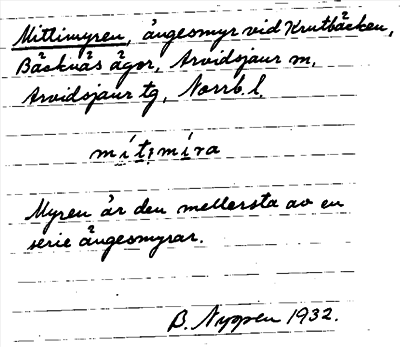 Mittimyren, ängesmyr vid Krutbäcken,
Bäcknäs ägor, Arvidsjaur m,
Arvidsjaur tg, Norrb. l.
mít:míra
Myren är den mellersta av en
serie ängesmyrar.
B. Nygren 1932.